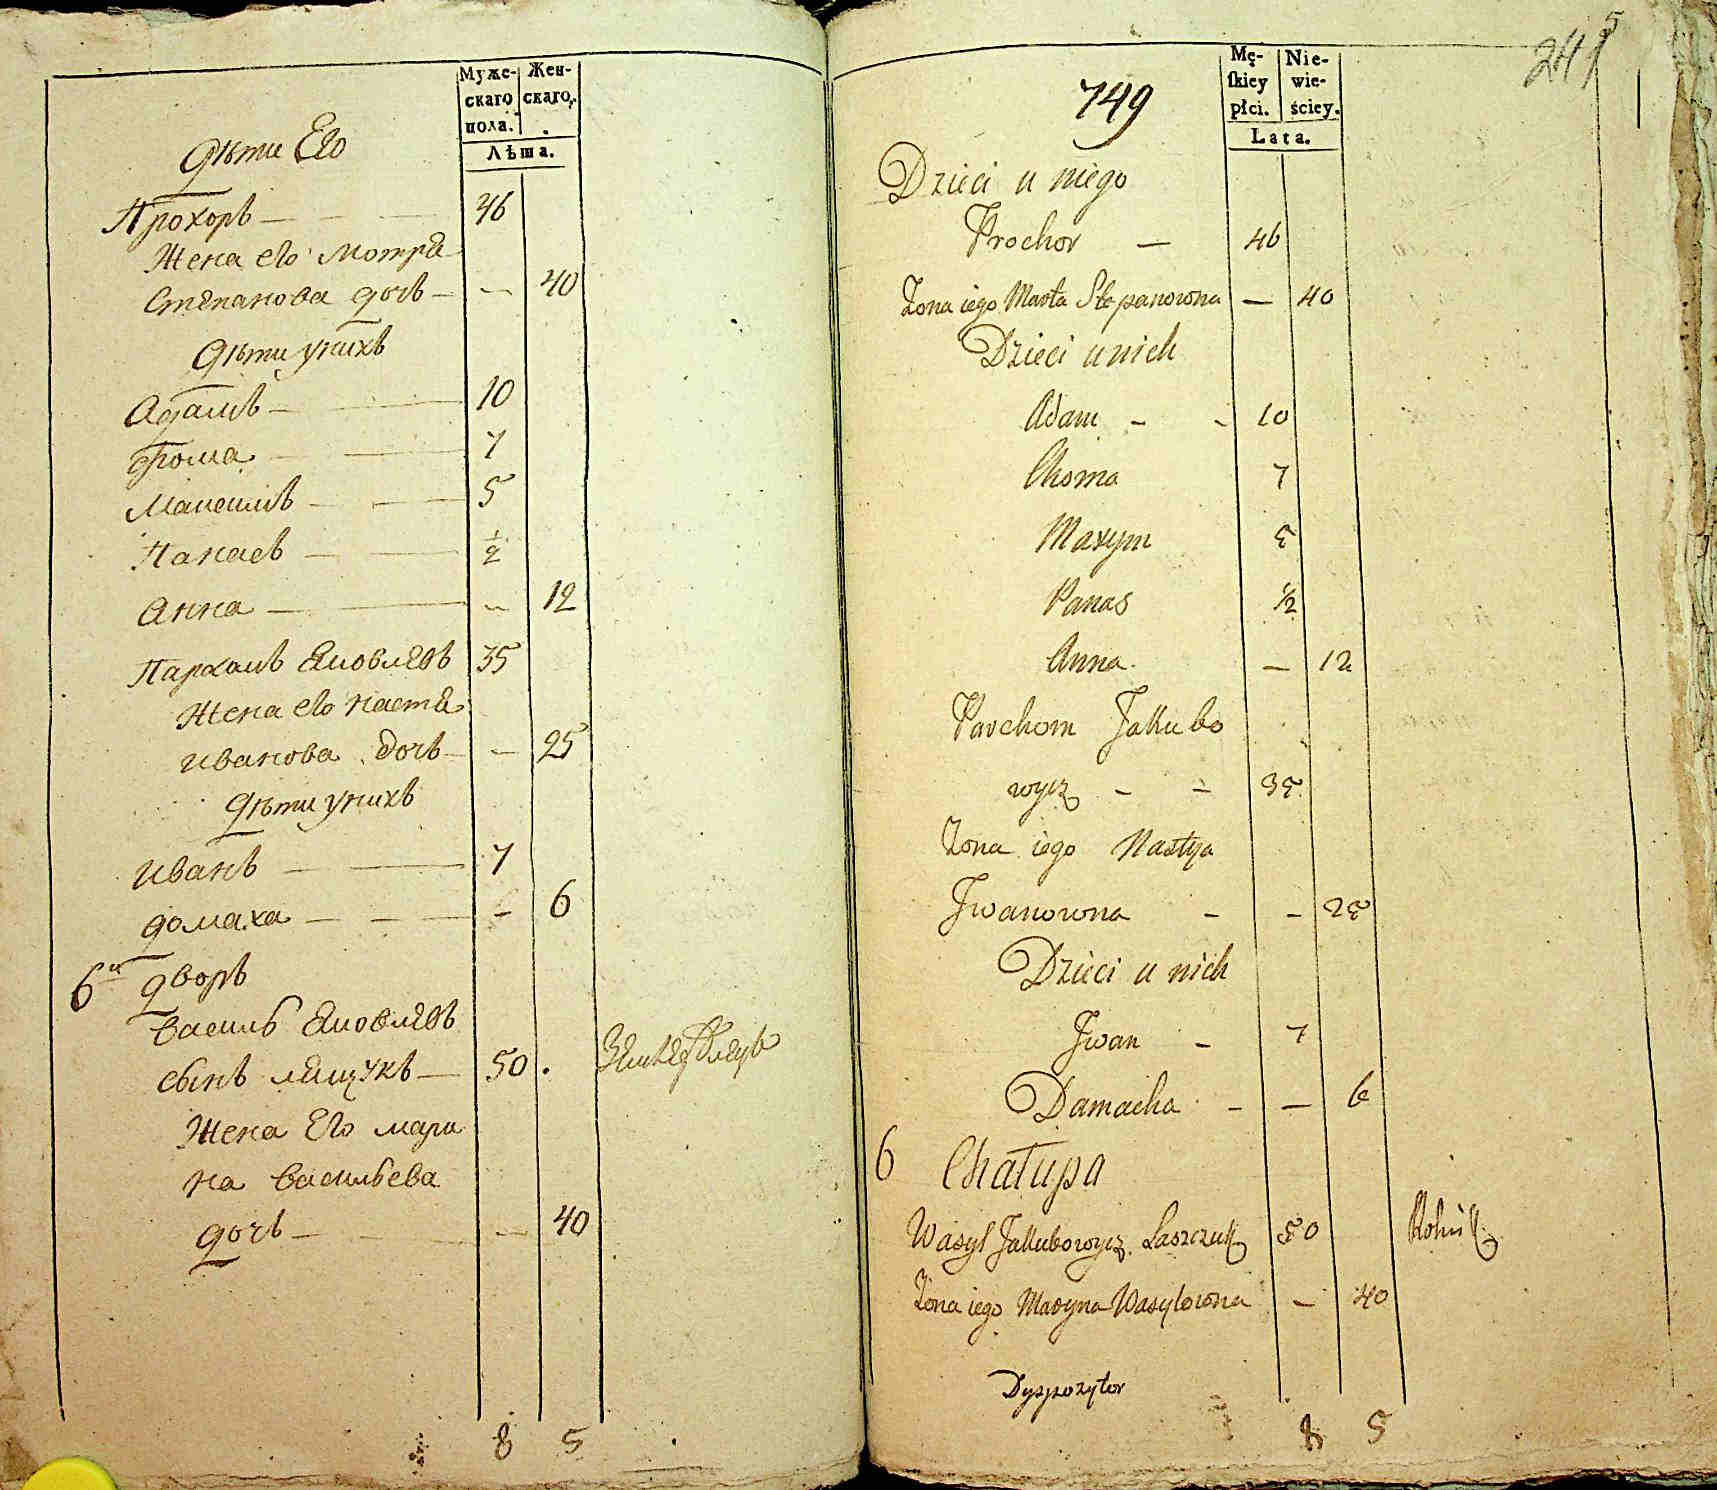 Муже- Жен-
скаго скаго.
пола.
Лѣта.
Дѣти Его
Прохоръ — 46
Жена его Мотря
Степанова дочь — — 40
Дѣти унихъ
Адамъ — 10
Фома — 7
Максимъ — 5
Панасъ — ½
Анна — — 12
Пархомъ Яковлевъ 35
Жена его Настя
Иванова дочь — — 25
Дѣти унихъ
Иванъ — 7
Домаха — — 6
6й дворъ
Василь Яковлевъ
сынъ Лящукъ — 50 .
Жена Его Мари
на Васильева
дочь — — 40
8 5
749
5
241
Mę- Nie-
skiey wie-
płci. ściey.
Lata.
Dzieci u niego
Prochor — 46
Żona iego Marta Stepanowna — 40
Dzieci u nich
Adam - - 10
Choma 7
Maxym 5
Panas ½
Anna — 12
Parchom Jakubo
wycz - - 35
Żona iego Nastya
Jwanowna - - 25
Dzieci u nich
Jwan - 7
Damacha - — 6
6 Chałupa
Wasyl Jakubowycz Laszczuk 50 Rolnik
Żona iego Maryna Wasylowna — 40
Dyspozytor
8 5